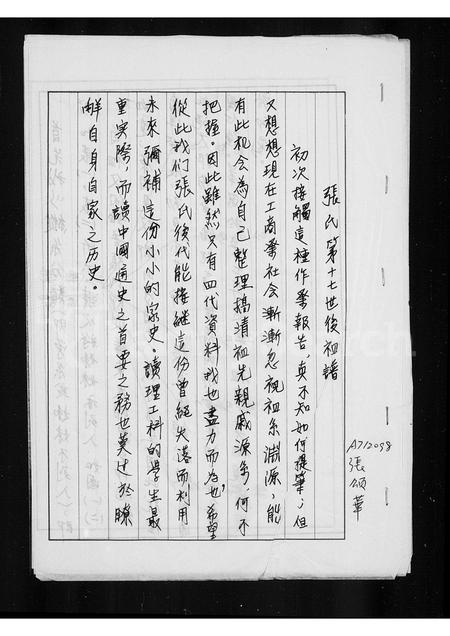 張氏第十七世後祖譜
A712098
張頌華
初次接觸這種作業報告，真不知如何提筆；但
又想想現在工商業社會漸漸忽視祖系淵源，能
有此机会為自己整理搞清祖先親戚源系，何不
把握。因此雖然只有四代資料我也盡力而為也，希望
從此我们張氏後代能接繼這份曾經失落而利用
未來彌補這份小小的家史。讀理工科的學生最
重實際，而讀中國通史之首要之務也莫過於瞭
解自身自家之历史。